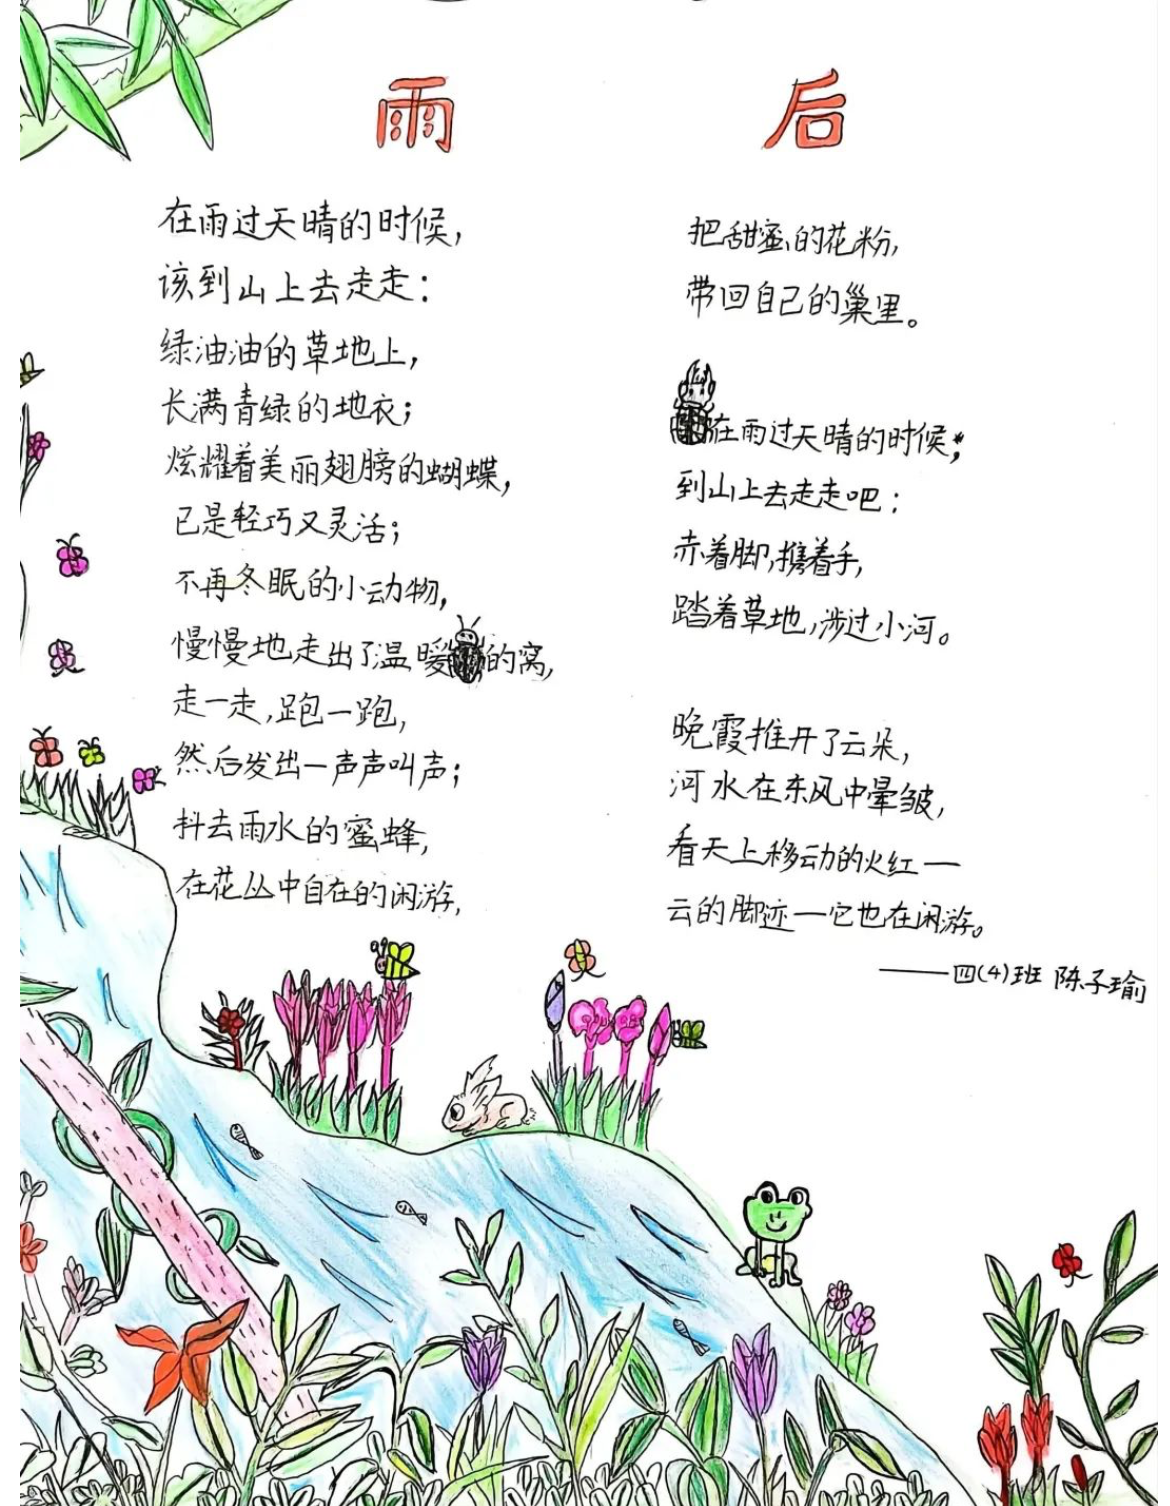 雨后
在雨过天晴的时候，
该到山上去走走：
绿油油的草地上，
长满青绿的地衣；
炫耀着美丽翅膀的蝴蝶，
已是轻巧又灵活；
不再冬眠的小动物，
慢慢地走出了温暖的窝，
走一走，跑一跑，
然后发出一声声叫声；
抖去雨水的蜜蜂，
在花丛中自在的闲游，
把甜蜜的花粉，
带回自己的巢里。
在雨过天晴的时候；
到山上去走走吧：
赤着脚，携着手，
踏着草地，涉过小河。
晚霞推开了云朵，
河水在东风中晕皱，
看天上移动的火红——
云的脚迹——它也在闲游。
——四(4)班 陈子瑜